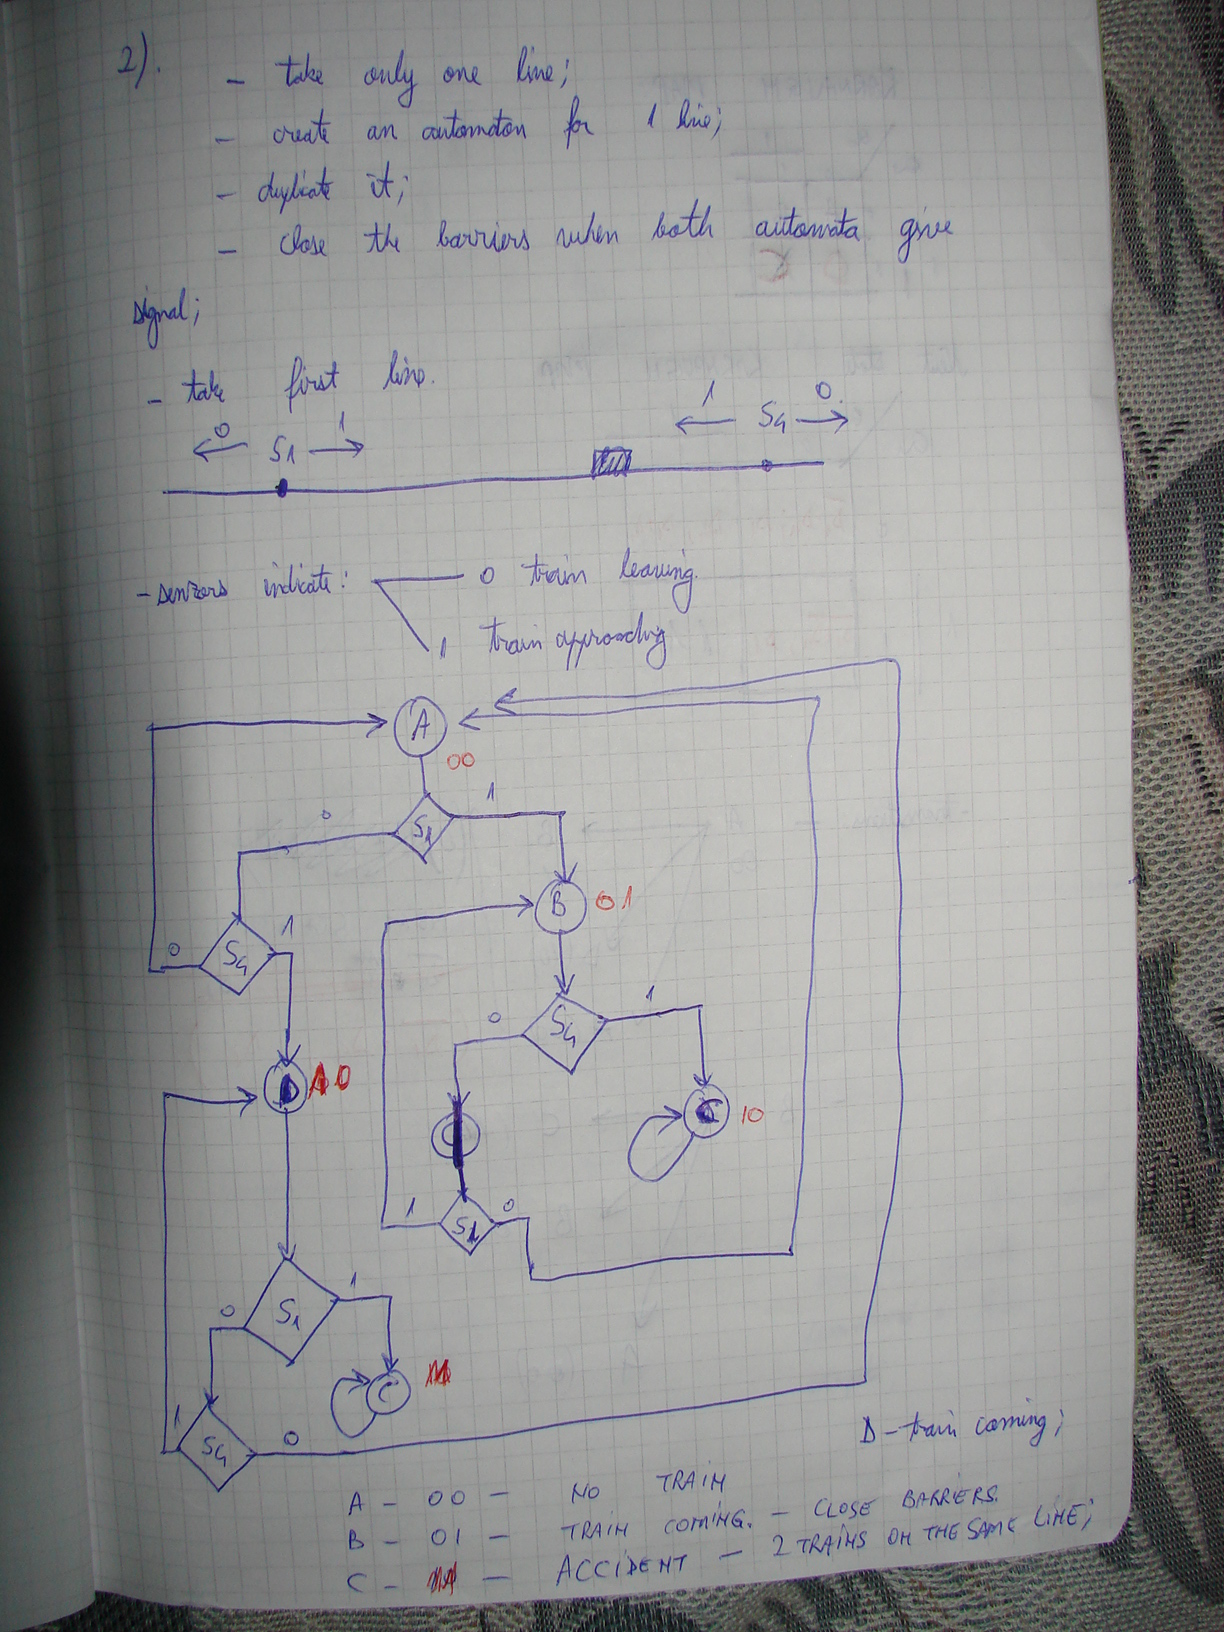 2).
- take only one line;
- create an automaton for 1 line;
- duplicate it;
- close the barriers when both automata give
signal;
- take first line.
0 S1 1
1 S4 0.
- senzors indicate: 0 train leaving.
1 train approaching
A
00
S1
0 1
B 01
S4
0 1
S4
0 1
D 10
C 10
S1
1 0
S1
0 1
C
S4
1 0
D - train coming;
A - 00 - NO TRAIN
B - 01 - TRAIN COMING. - CLOSE BARRIERS.
C - 11 - ACCIDENT - 2 TRAINS ON THE SAME LINE;